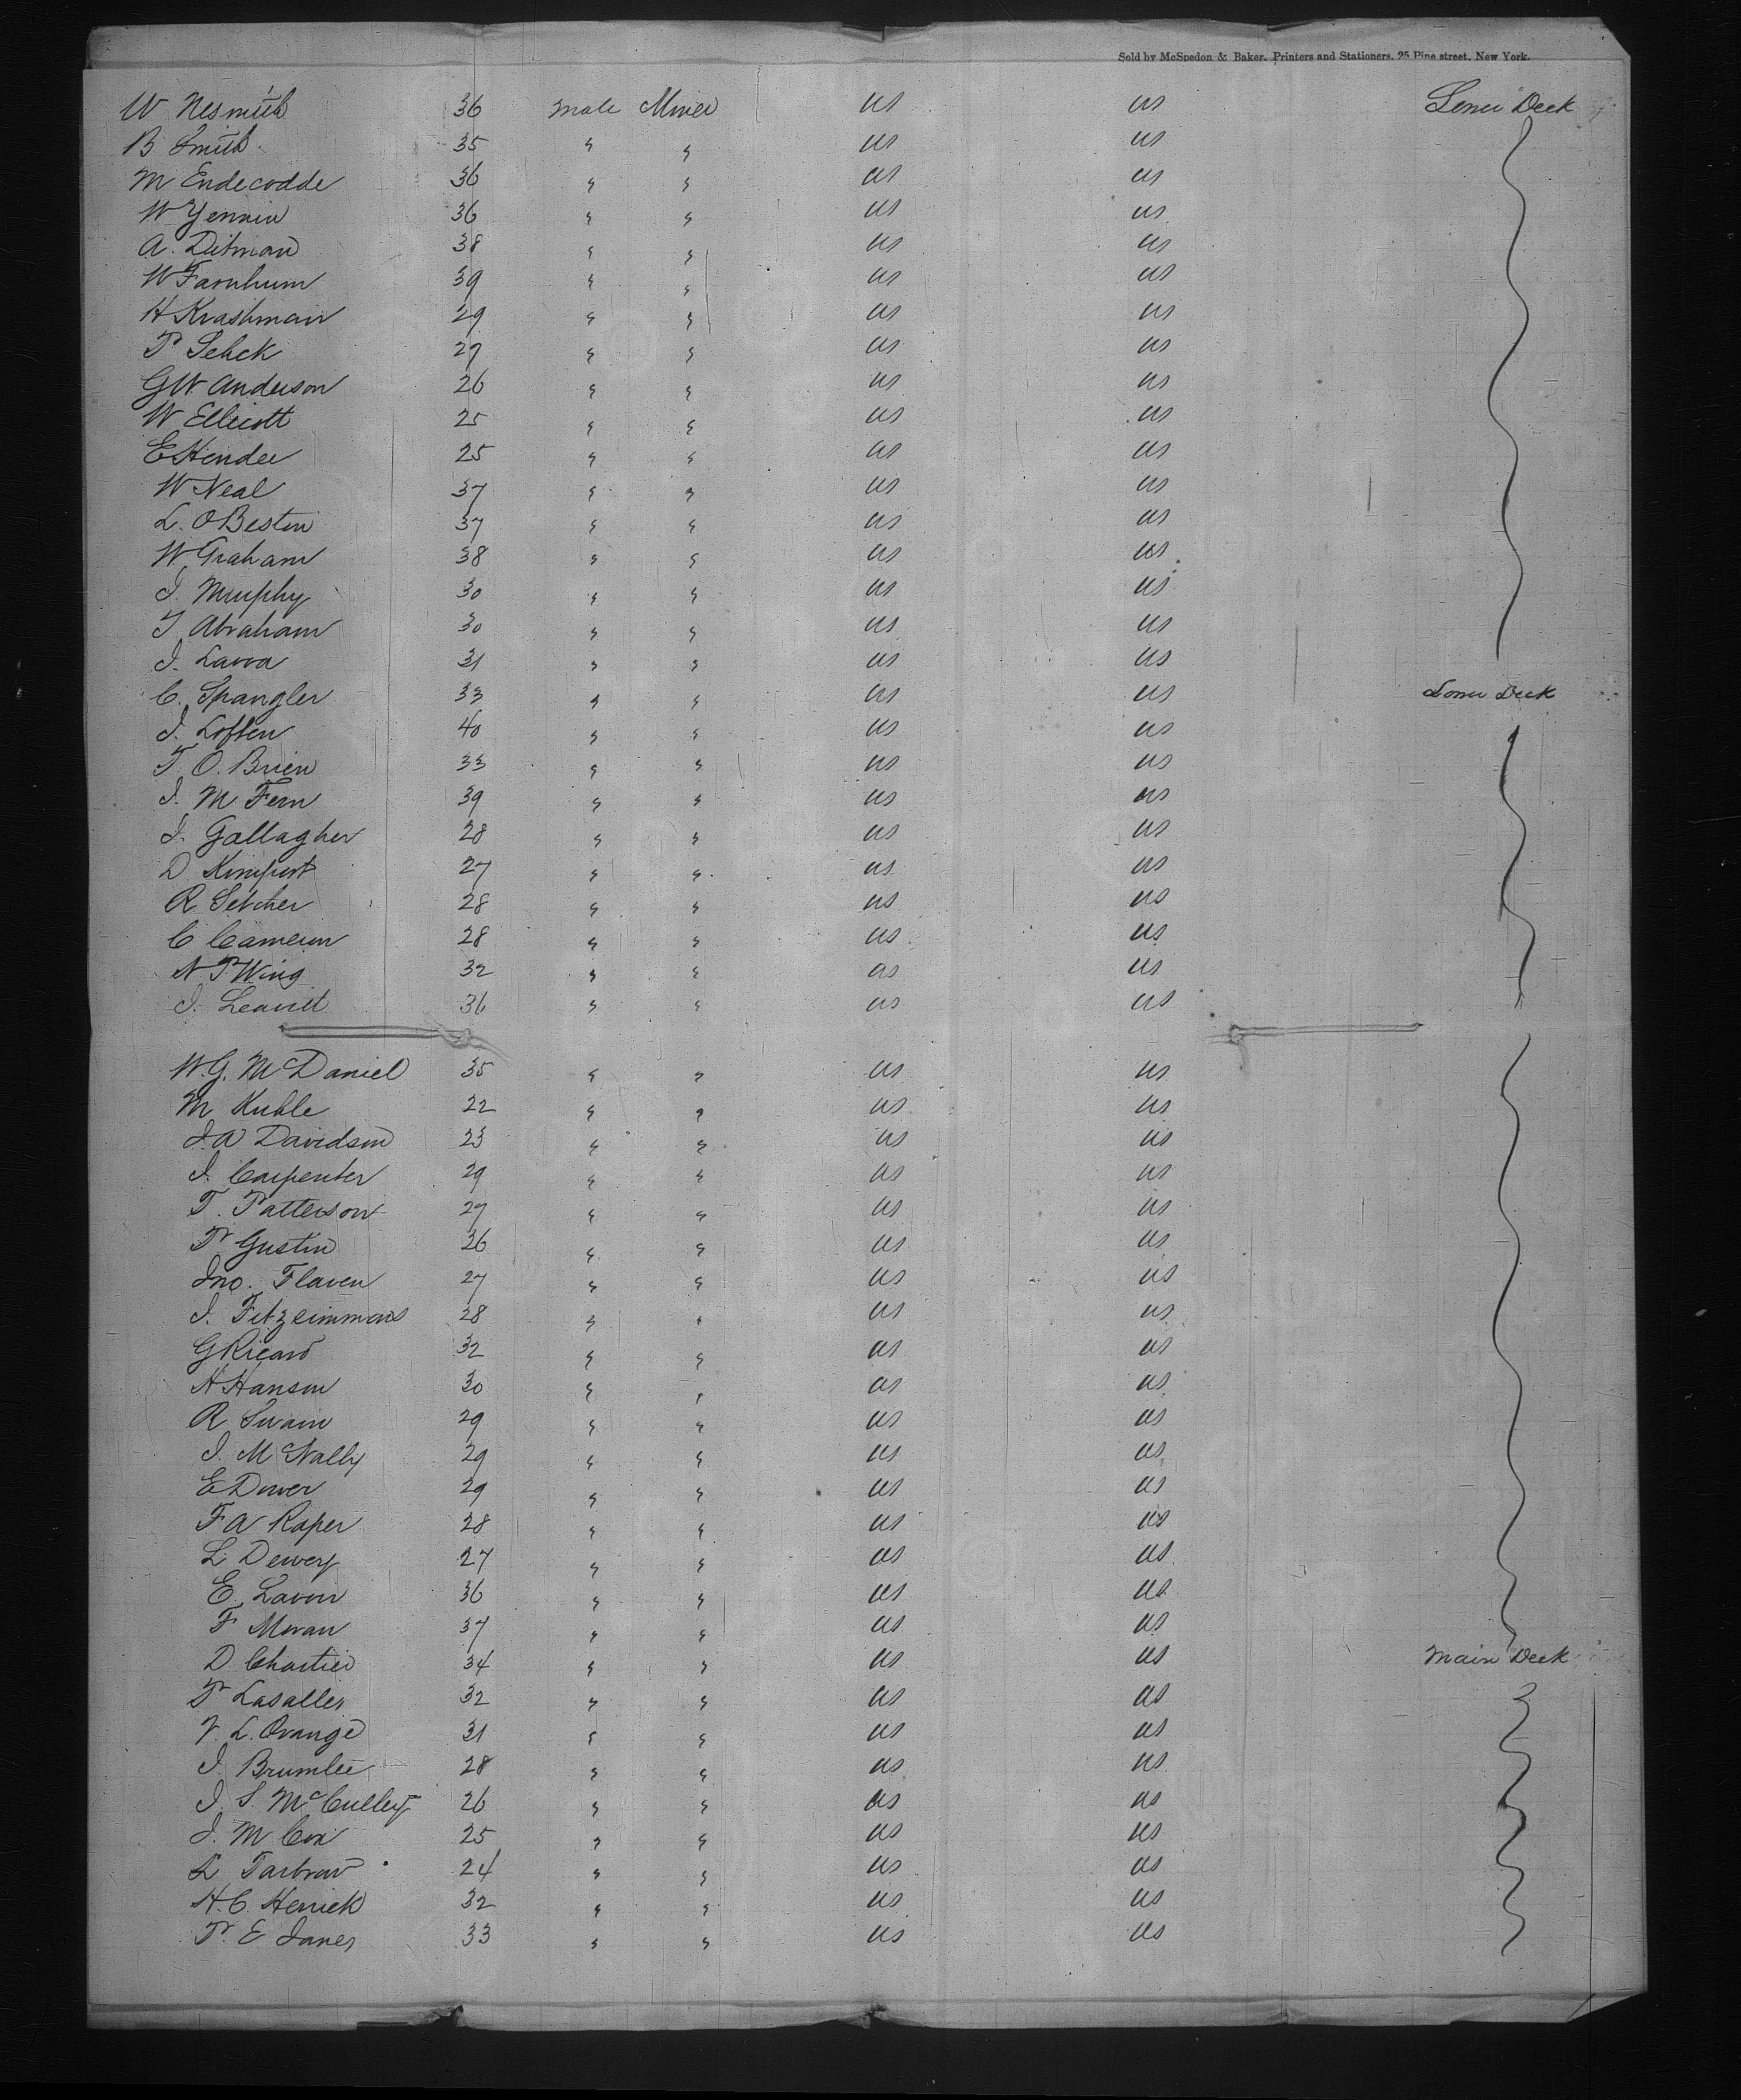 Sold by McSpedon & Baker, Printers and Stationers, 25 Pine street, New York.
W Nesmith 36 male Miner US US Lower Deck
B Smith 35 " " US US
M Endecodde 36 " " US US
W 36 " " US US
A. Ditman 38 " " US US
W Farnhum 39 " " US US
H Krashman 29 " " US US
P Schck 27 " " US US
GW Anderson 26 " " US US
W Ellicott 25 " " US US
E Hendee 25 " " US US
W Neal 37 " " US US
L. OBestin 37 " " US US
W Graham 38 " " US US
J. Murphy 30 " " US US
T Abraham 30 " " US US
J. Lavva 31 " " US US
C. Spangler 33 " " US US Lower Deck
J. Loften 40 " " US US
T. O. Brien 33 " " US US
J. M Fern 39 " " US US
J. Gallagher 28 " " US US
D Kimport 27 " " US US
R Setcher 28 " " US US
C Cameron 28 " " US US
N P Wing 32 " " US US
J. Leavitt 36 " " US US
W. G. McDaniel 35 " " US US
M Kuhle 22 " " US US
J. A Davidson 23 " " US US
J. Carpenter 29 " " US US
T. Patterson 27 " " US US
P Gustin 26 " " US US
Jno. Flaven 27 " " US US
J. Fitzsimmons 28 " " US US
G Ricard 32 " " US US
H Hanson 30 " " US US
R Swain 29 " " US US
J. McNally 29 " " US US
E Dower 29 " " US US
F A Roper 28 " " US US
L Dewey 27 " " US US
E. Lavon 36 " " US US
F Moran 37 " " US US
D Chartier 34 " " US US Main Deck
P Lasalles 32 " " US US
V. L. Orange 31 " " US US
J. Brumlee 28 " " US US
J. S. McCulley 26 " " US US
J. M Cox 25 " " US US
L Tarbrow 24 " " US US
H. C. Herrick 32 " " US US
P. E Janes 33 " " US US